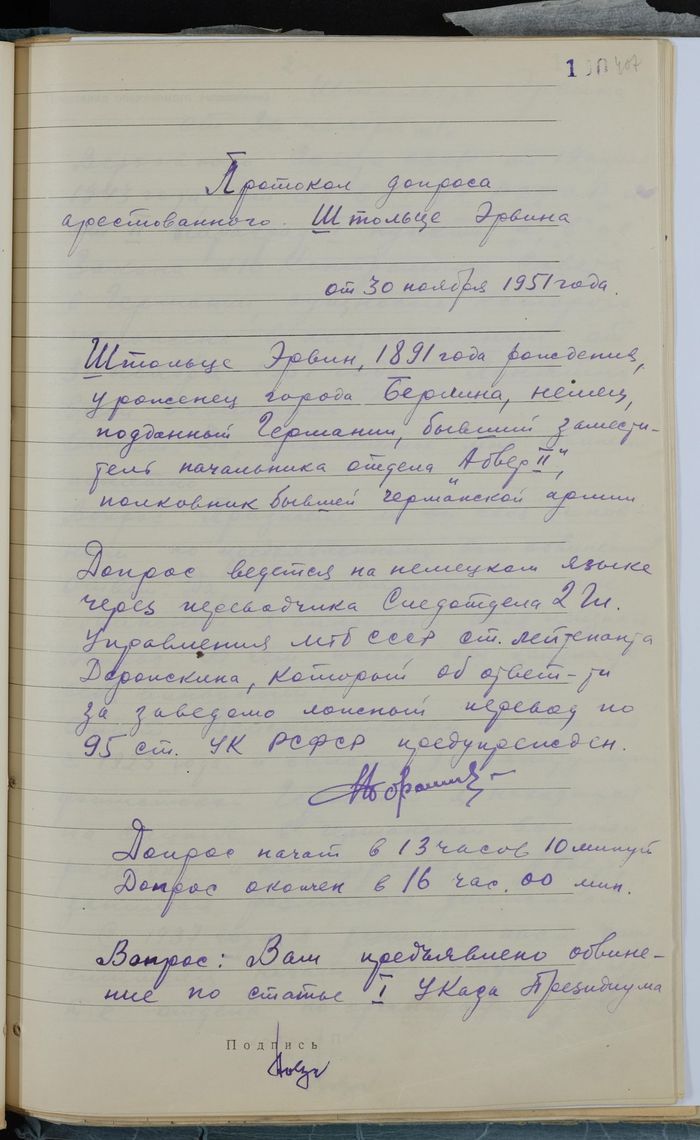 1
407
Протокол допроса
арестованного Штольце Эрвина
от 30 ноября 1951 года.
Штольце Эрвин, 1891 года рождения,
уроженец города Берлина, немец,
подданный Германии, бывший замести-
тель начальника отдела "Абвер II",
полковник бывшей германской армии
Допрос ведется на немецком языке
через переводчика Следотдела 2 Гл.
Управления МГБ СССР ст. лейтенанта
который об ответ-ти
за заведомо ложный перевод по
95 ст. УК РСФСР предупрежден.
Допрос начат в 13 часов 10 минут
Допрос окончен в 16 час. 00 мин.
Вопрос: Вам предъявлено обвине-
ние по статье I Указа Президиума
Подпись